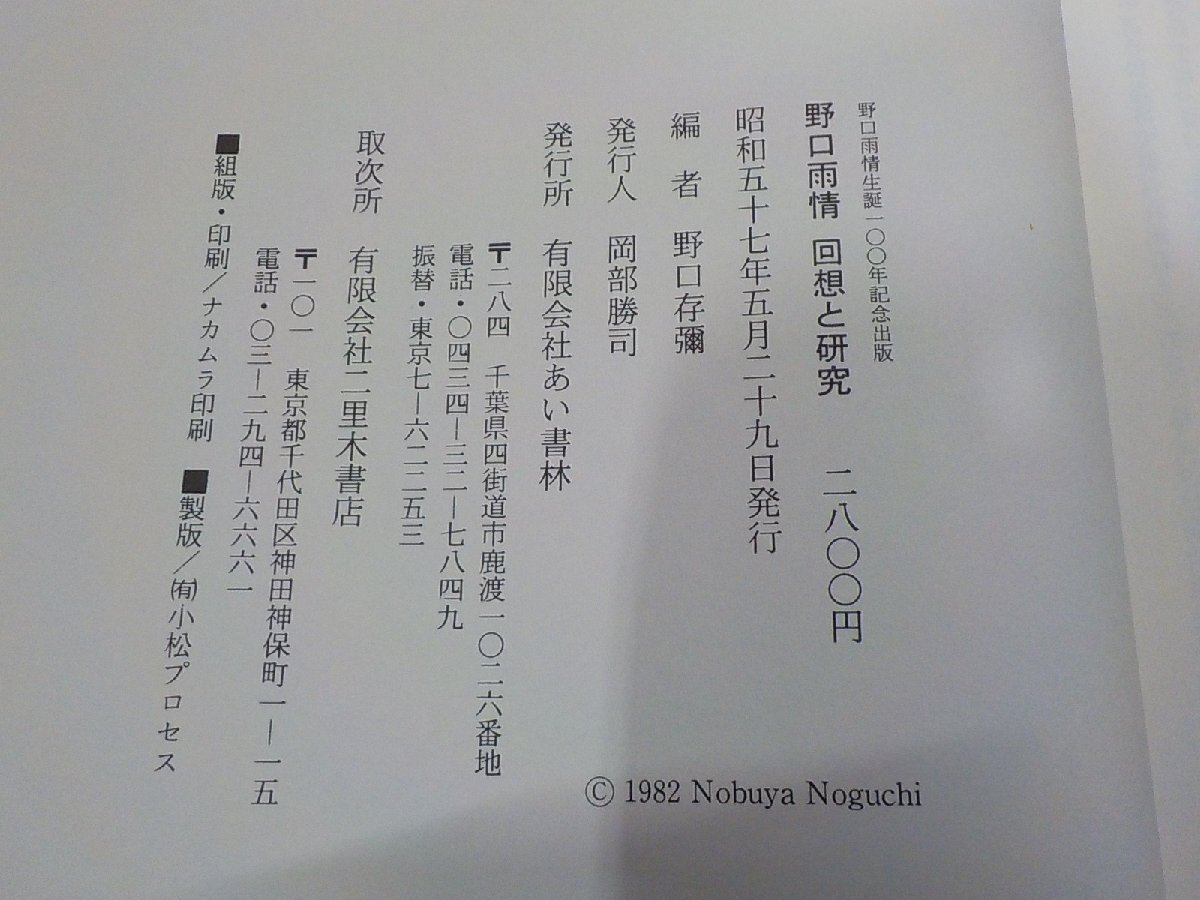 野口雨情生誕一〇〇年記念出版
野口雨情 回想と研究 二八〇〇円
昭和五十七年五月二十九日発行
編者 野口存彌
発行人 岡部勝司
発行所 有限会社あい書林
〒二八四 千葉県四街道市鹿渡一〇二六番地
電話・〇四三四―三二―七八四九
振替・東京七―六二二五三
取次所 有限会社二里木書店
〒一〇一 東京都千代田区神田神保町一―一五
電話・〇三―二九四―六六六一
■組版・印刷/ナカムラ印刷 ■製版/㈲小松プロセス
© 1982 Nobuya Noguchi